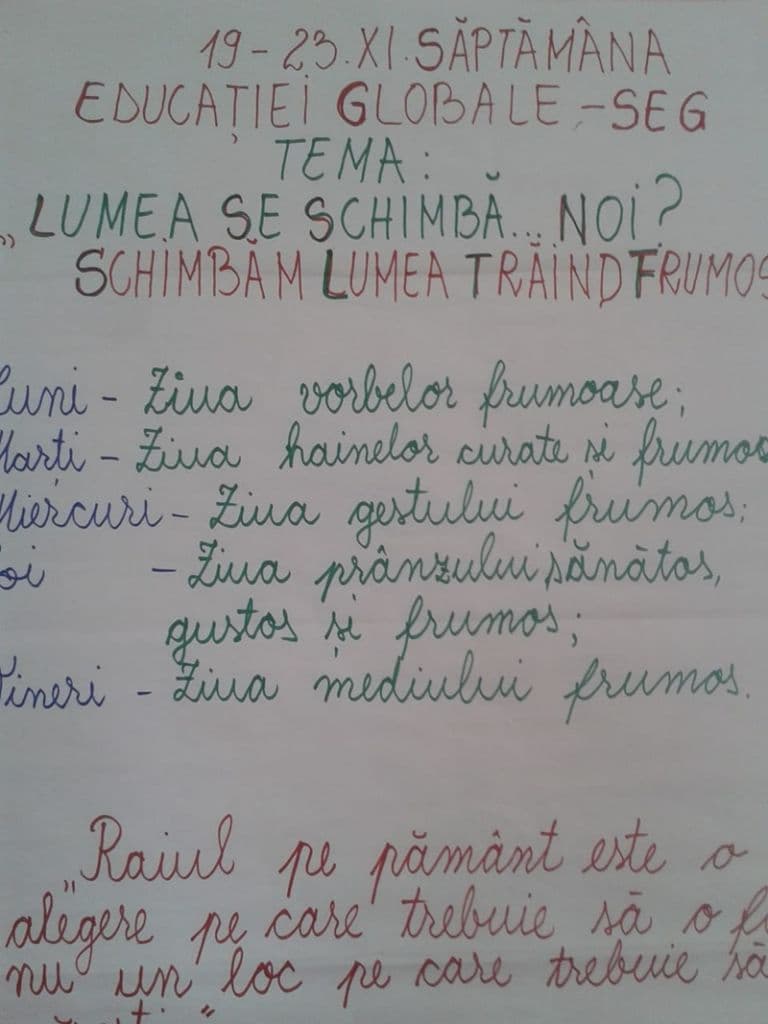 19-23.XI. SĂPTĂMÂNA
EDUCAȚIEI GLOBALE -SEG
TEMA:
„LUMEA SE SCHIMBĂ... NOI?
SCHIMBĂM LUMEA TRĂIND FRUMOS
Luni - Ziua vorbelor frumoase;
Marți - Ziua hainelor curate și frumoa
Miercuri - Ziua gestului frumos;
Joi - Ziua prânzului sănătos,
gustos și frumos;
Vineri - Ziua mediului frumos.
„Raiul pe pământ este o
alegere pe care trebuie să o f
nu un loc pe care trebuie să